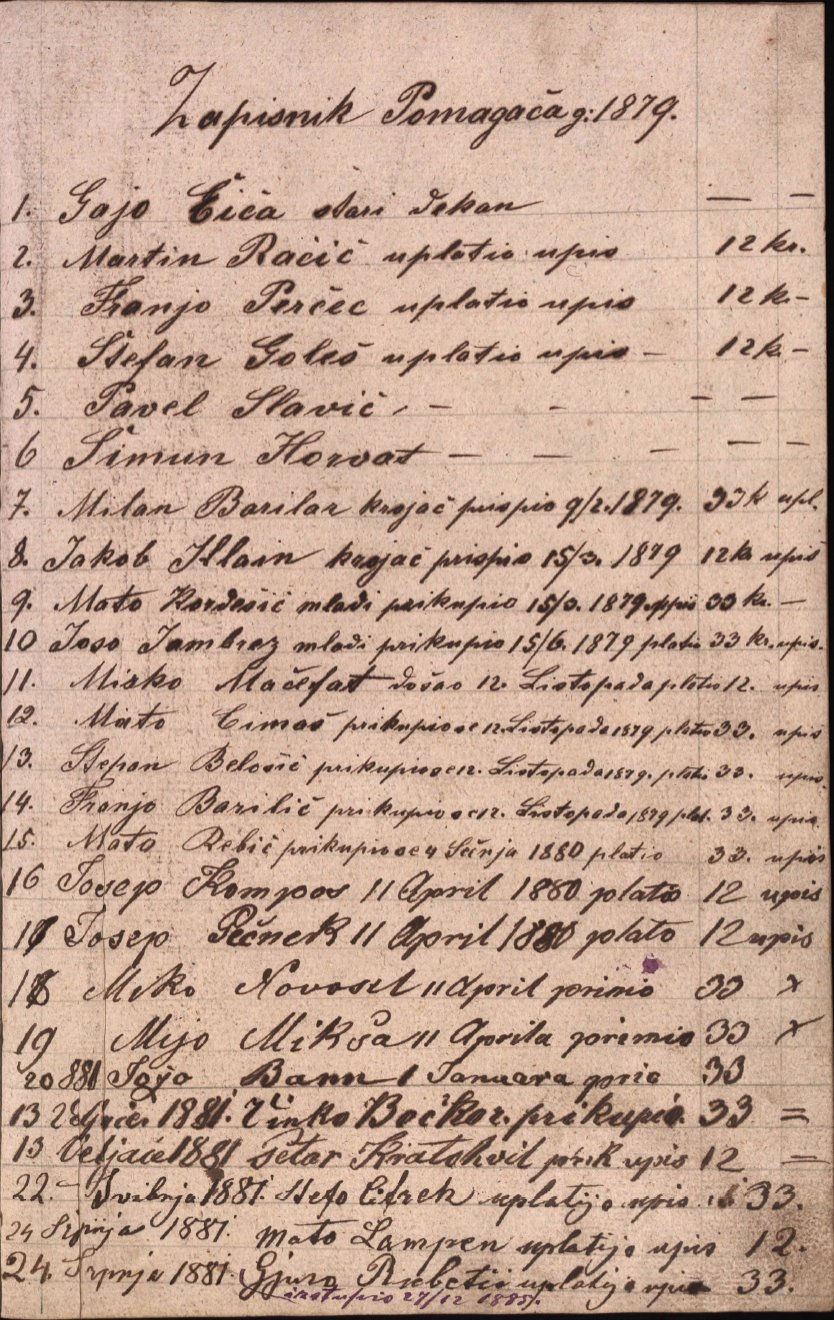 Zapisnik Pomagača g: 1879.
1. Gajo Čiča stari dekan — —
2. Martin Račić uplatio upis 12 kr.
3. Franjo Perčec uplatio upis 12 k. –
4. Štefan Goleš uplatio upis – 12 k. –
5. Pavel Slavič – – — —
6 Šimun Horvat — — — — —
7. Milan Barilar krojač prispio 9/2. 1879. 33 k upl.
8. Jakob krojač prispio 15/3. 1879 12 kr upis
9. Mato Kordešić mladi prikupio 15/3. 1879. upis 33 kr. —
10 Joso Jambrez mladi prikupio 15/6. 1879 platio 33 kr. upis.
11. Misko Mačefat došao 12. Listopada platio 12. upis
12. Mato Cimaš prikupio se 12. Listopada 1879 platio 33. upis
13. Stepan Belošić prikupio se 12. Listopada 1879. platio 33. upis.
14. Franjo Barilič prikupio se 12. Listopada 1879 plat. 33. upis
15. Mato Rebić prikupio se 4 Sečnja 1880 platio 33. upis
16 Josep Kompos 11 April 1880 platio 12 upis
17 Josep Pečnek 11 April 1880 plato 12 upis
18 Miko Novosel 11 April primio 33 x
19 Mijo Mikša 11 Aprila premio 33 x
20 881 Jojo Banu 1 Januara 33
13 Veljače 1881. Vinko Bočkor. prikupio. 33 =
13 Veljače 1881 Petar Kratohvil prik upis 12 =
22. – Svibnja 1881. Stefo Cifrek uplatijo upis 33.
24 Srpnja 1881. Mato Lampen uplatijo upis 12.
24. Srpnja 1881. Gjuro uplatijo upis 33.
istupio 27/12 1885.